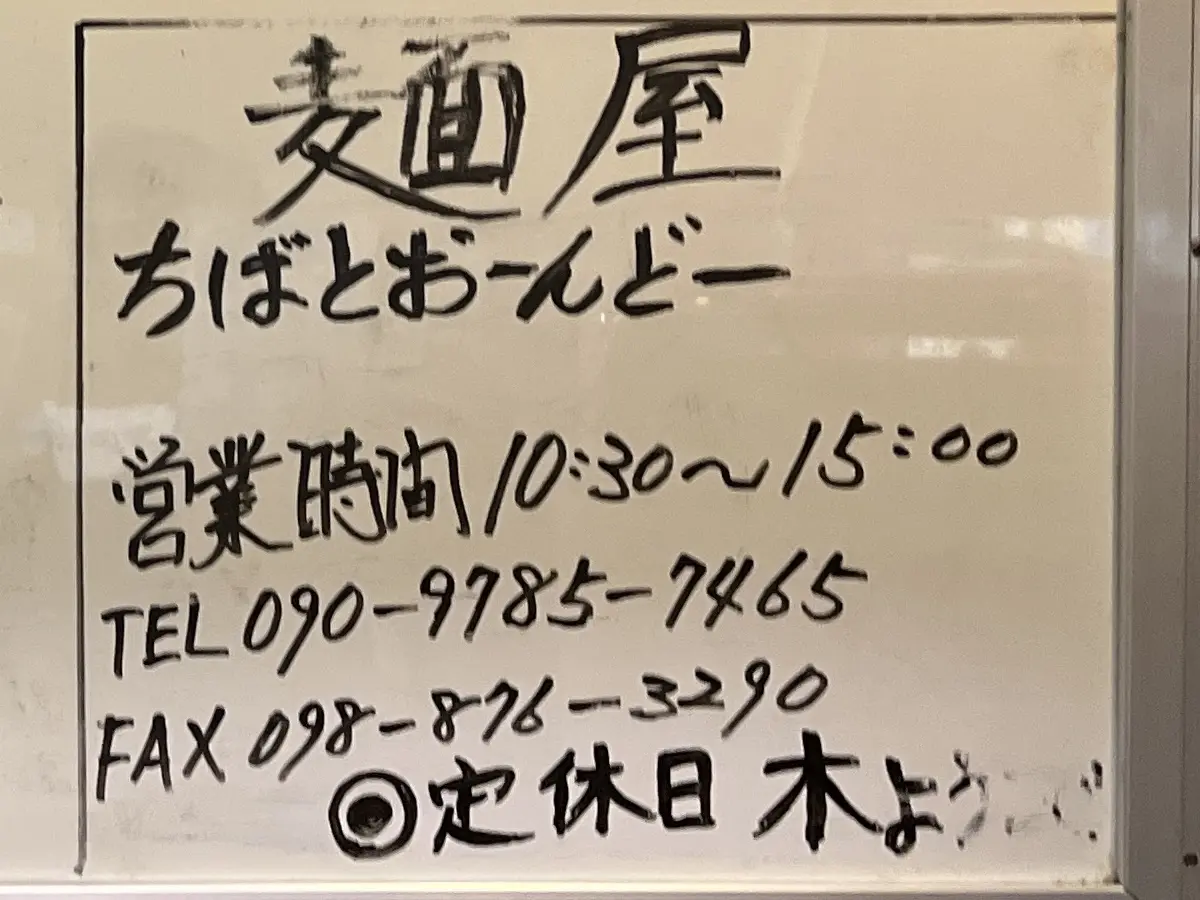 麺屋
ちばとおーんどー
営業時間 10:30〜15:00
TEL 090-9785-7465
FAX 098-876-3290
◎定休日 木よう